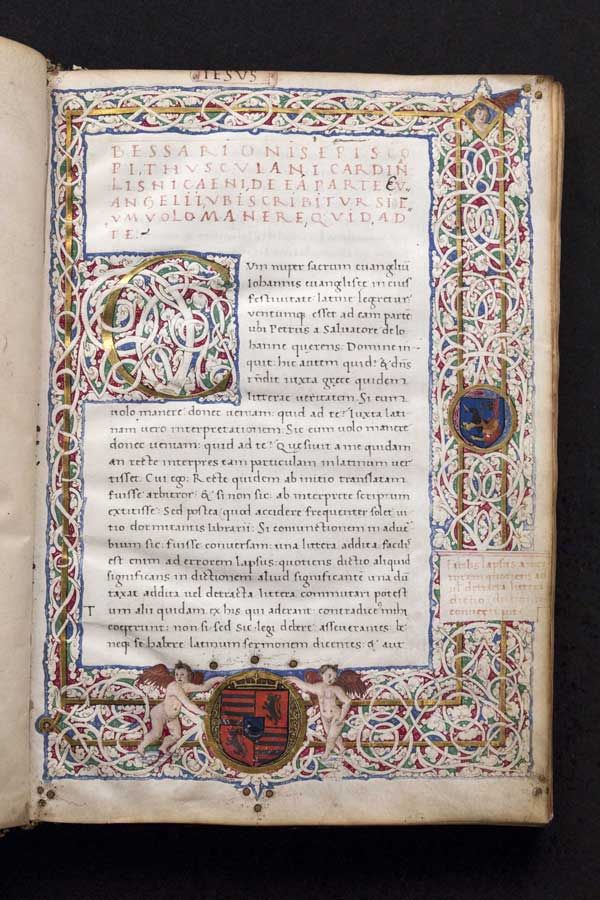 IESVS
BESSARIONIS EPISCO
PI, THVSCVLANI CARDIN
LIS NICAENI, DE EA PARTE EV
ANGELII VBI SCRIBITVR SI E
VM VOLO MANERE, QVID, AD
TE.
CVm nuper sacrum euangliũ
Iohannis euangliste in eius
festiuitate latine legeretur
uentumq; esset ad eam parte
ubi Petrus a Saluatore de Io
hanne querens. Domine in
quit. hic autem quid? & dñs
rñdit iuxta grece quidem
litterae ueritatem. Si eum
uolo manere donec ueniam. quid ad te? Iuxta lati
nam uero interpretationem. Sic eum uolo manere
donec ueniam. quid ad te? Quesiuit a me quidam
an recte interpres eam particulam in latinum uer
tisset. Cui ego. Recte quidem ab initio translatam
fuisse arbitror. & si non sic. ab interprete scriptum
extitisse. Sed postea quod accidere frequenter solet. ui
tio dormitantis librarii. Si coniunctionem in aduer
bium sic. fuisse conuersam. una littera addita. facilis
est enim ad errorem lapsus. quotiens dictio aliquid
significans in dictionem aliud significantẽ una dũ
taxat addita uel detracta littera commutari potest
um alii quidam ex his qui aderant. contradicere mihi
coeperunt. non si sed sic legi debere asseuerantes. be
neq; se habere latinum sermonem dicentes. & aut
T
lapsus
quotiens ad
detracta littera
dictio